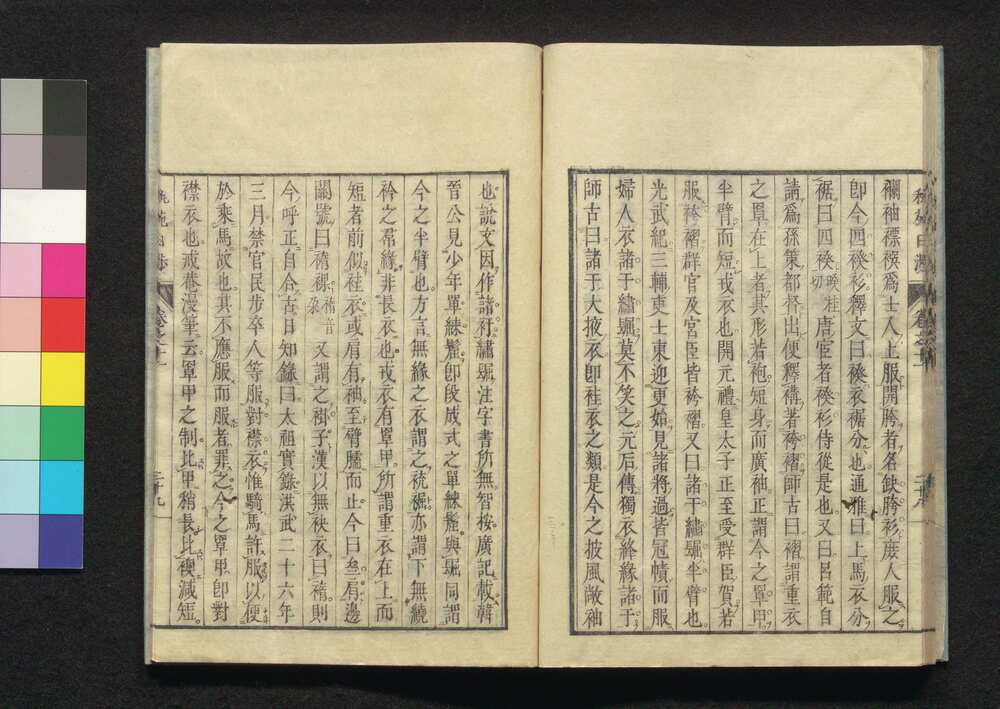 襴袖褾襈爲士人上服開胯者名缺胯衫庶人服之
卽今四䙆衫釋文曰䙆衣裾分也通雅曰上馬衣分
裾曰四䙆
唐宦者䙆衫侍從是也又曰呂範自
請爲孫策都督出便釋褠著袴褶師古曰褶謂重衣
之㝡在上者其形若袍短身而廣袖正謂今之罩甲
半臂而短戎衣也開元禮皇太子正至受群臣賀若
服袴褶群官及宮臣皆袴褶又曰諸于繡䘿半臂也
光武紀三輔吏士東迎更始見諸將過皆冠幘而服
婦人衣諸于繡䘿莫不笑之元后傳獨衣絳緣諸于
師古曰諸于大掖衣卽袿衣之類是今之披風敞袖
也說文因作諸衧繡䘿注字書所無智按廣記載韓
晉公見少年單練䯰卽段成式之單練䯰與䘿同謂
今之半臂也方言無緣之衣謂之裗裾亦謂下無繞
衿之帬緣非長衣也戎衣有罩甲所謂重衣在上而
短者前似袿衣或肩有袖至臂臑而止今曰叁肩邊
關號曰𧛾𧝓
又謂之褂子漢以無袂衣曰𧛾則
今呼正自合古日知錄曰太祖實錄洪武二十六年
三月禁官民步卒人等服對襟衣惟騎馬許服以便
於乘馬故也其不應服而服者罪之今之罩甲卽對
襟衣也戒菴漫筆云罩甲之制比甲稍長比襖減短